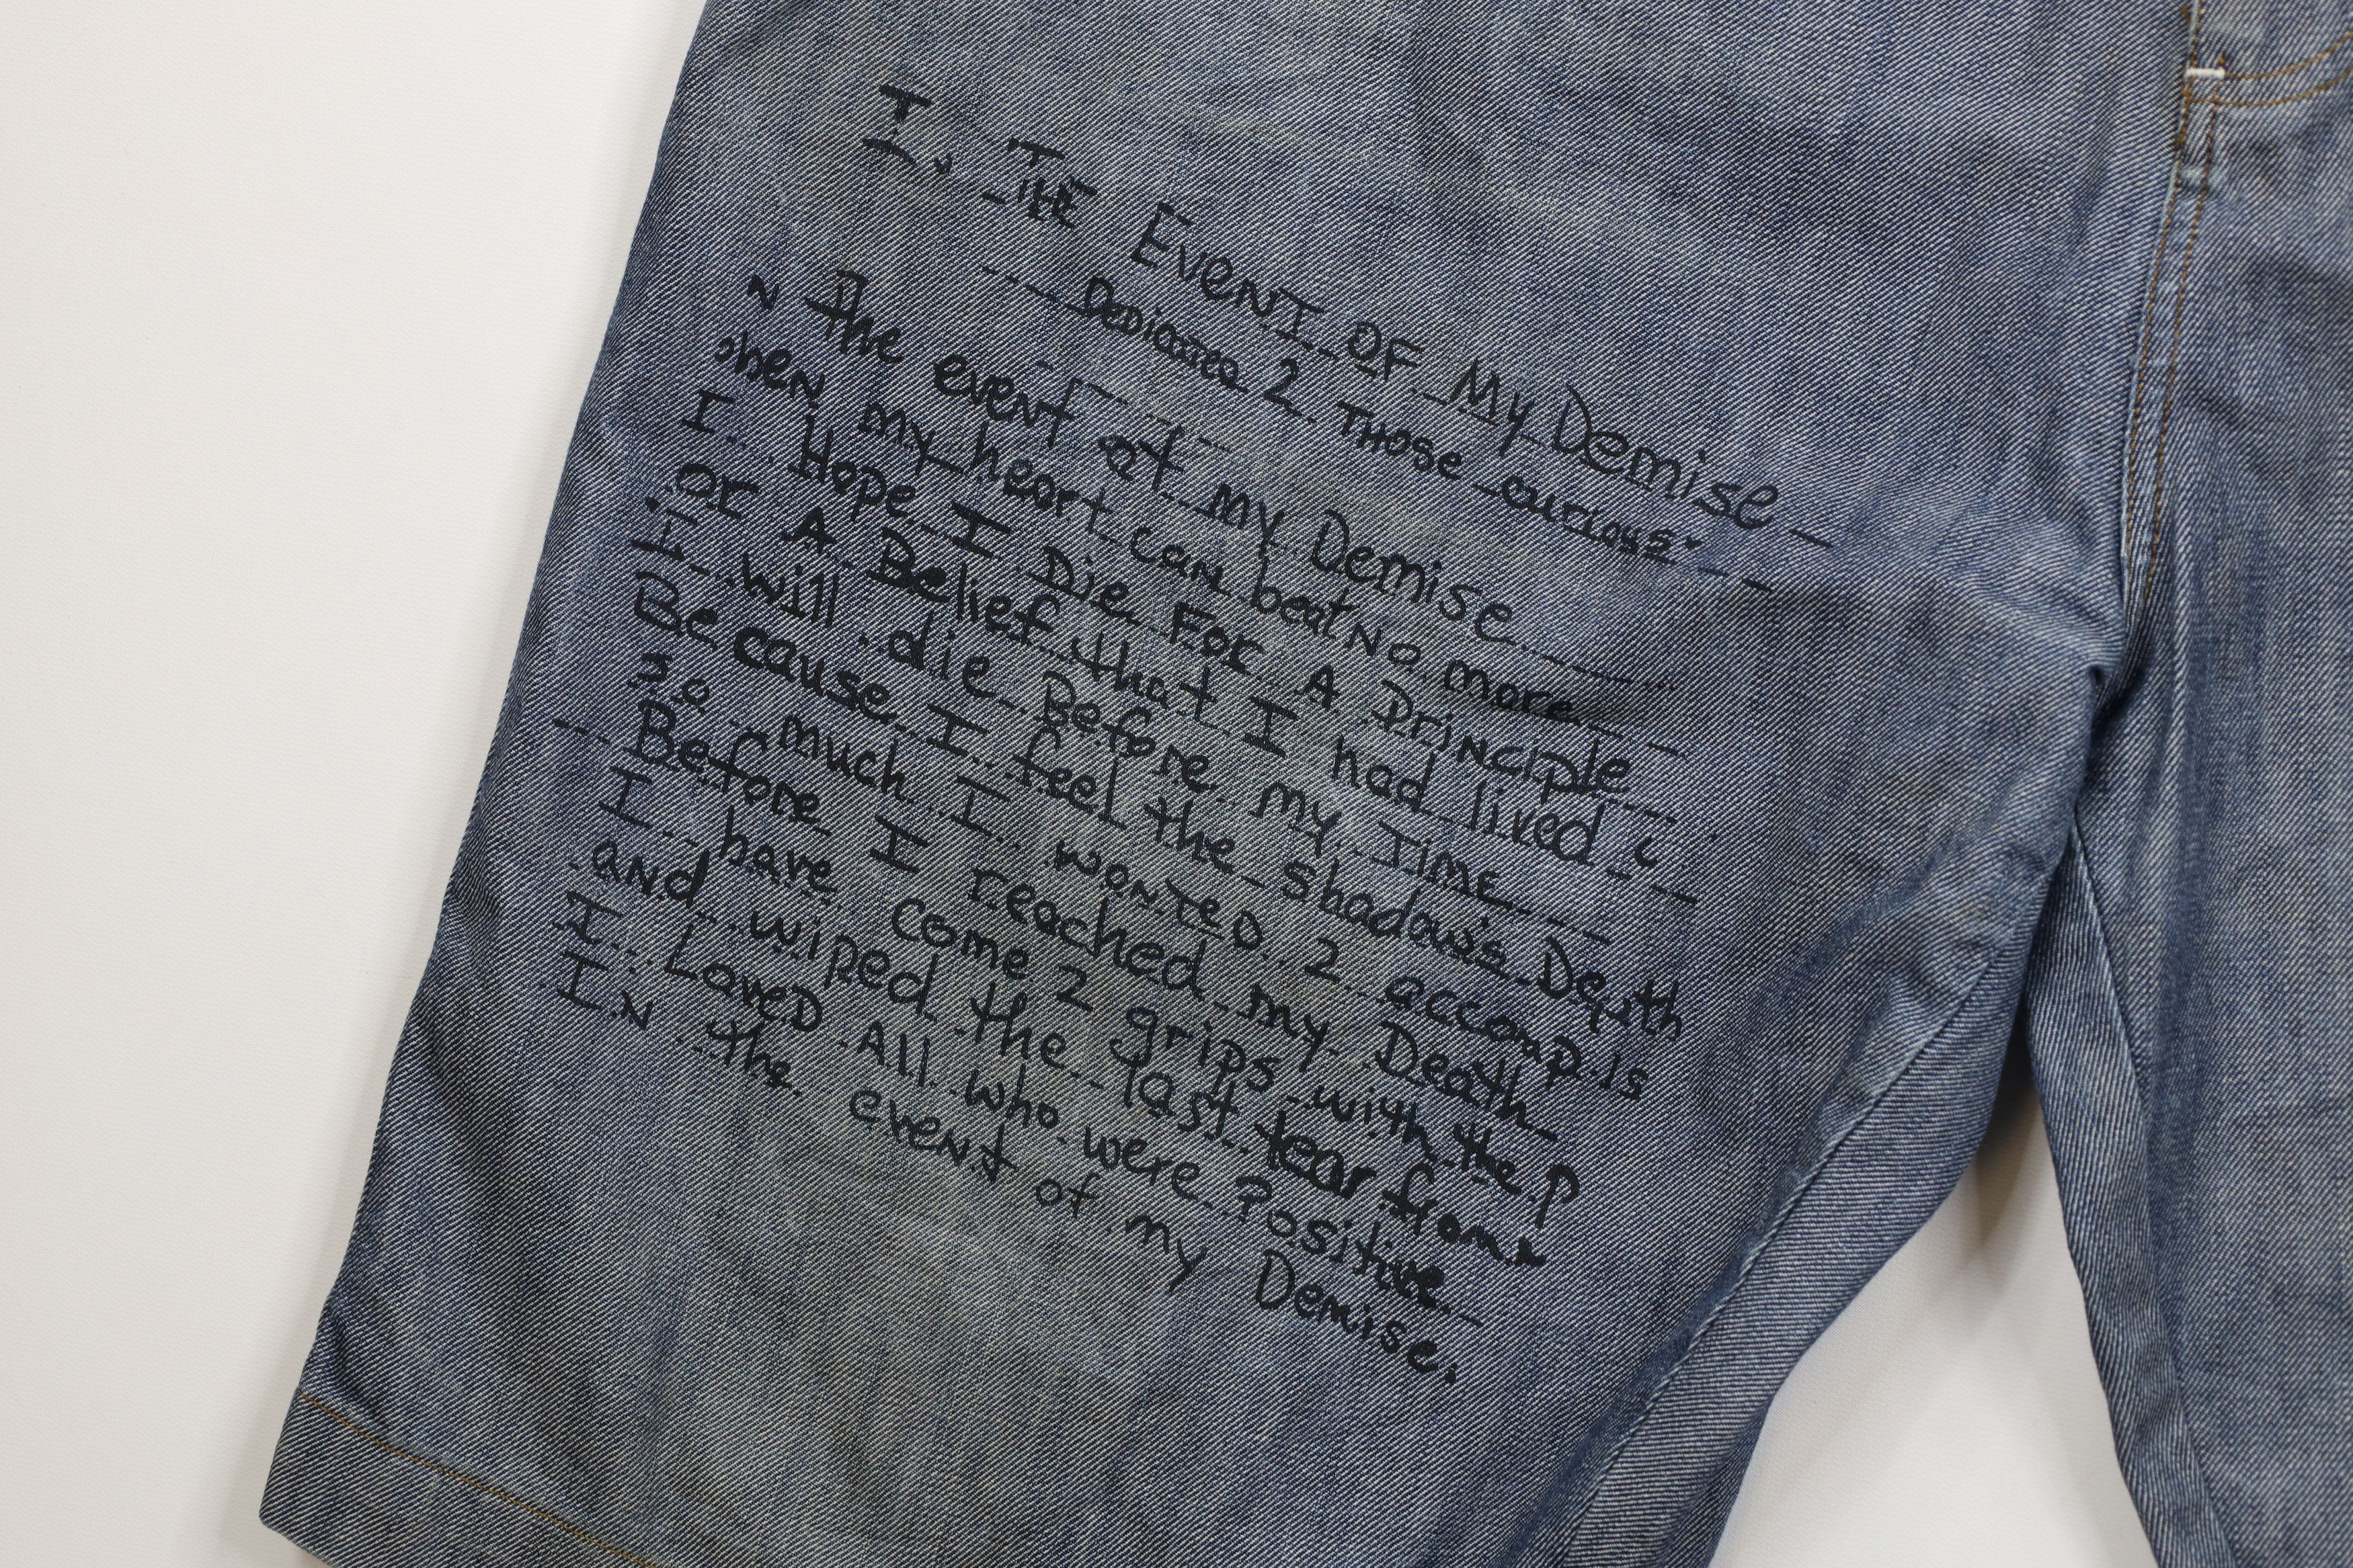 I. THE EvenT OF My Demise
Dedicated 2 Those curious
N the event of my Demise
when my heart can beat No more
I Hope I Die For A Principle
or A Belief that I had lived
I will die Before my Time
Because I feel the shadow's Depth
so much I wanted 2 accomplis
Before I reached my Death
I have come 2 grips with the P
and wiped the last tear from
I Loved All who were Positive
IN the event of my Demise.